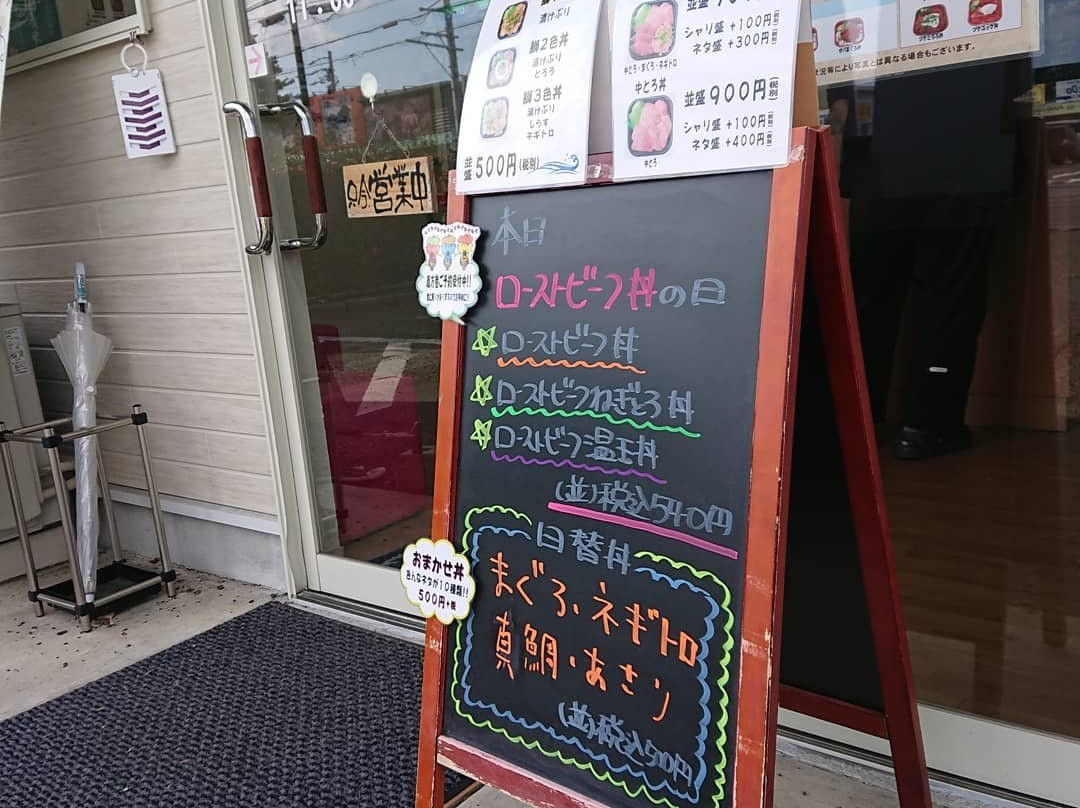 漬けぶり
鰤2色丼
漬けぶり
とろろ
鰤3色丼
漬けぶり
しらす
ネギトロ
並盛 500円(税別)
中とろ・まぐろ・ネギトロ
シャリ盛 +100円(税別)
ネタ盛 +300円(税別)
中とろ丼
並盛 900円(税別)
シャリ盛 +100円(税別)
ネタ盛 +400円(税別)
中とろ
状況等により写真とは異なる場合もございます。
只今営業中
本日
ローストビーフ丼の日
ローストビーフ丼
ローストビーフねぎとろ丼
ローストビーフ温玉丼
(並)税込540円
恵方巻ご予約受付中!!
日替丼
まぐろ、ネギトロ
真鯛・あさり
(並)税込500円
おまかせ丼
色んなネタが10種類!!
500円+税